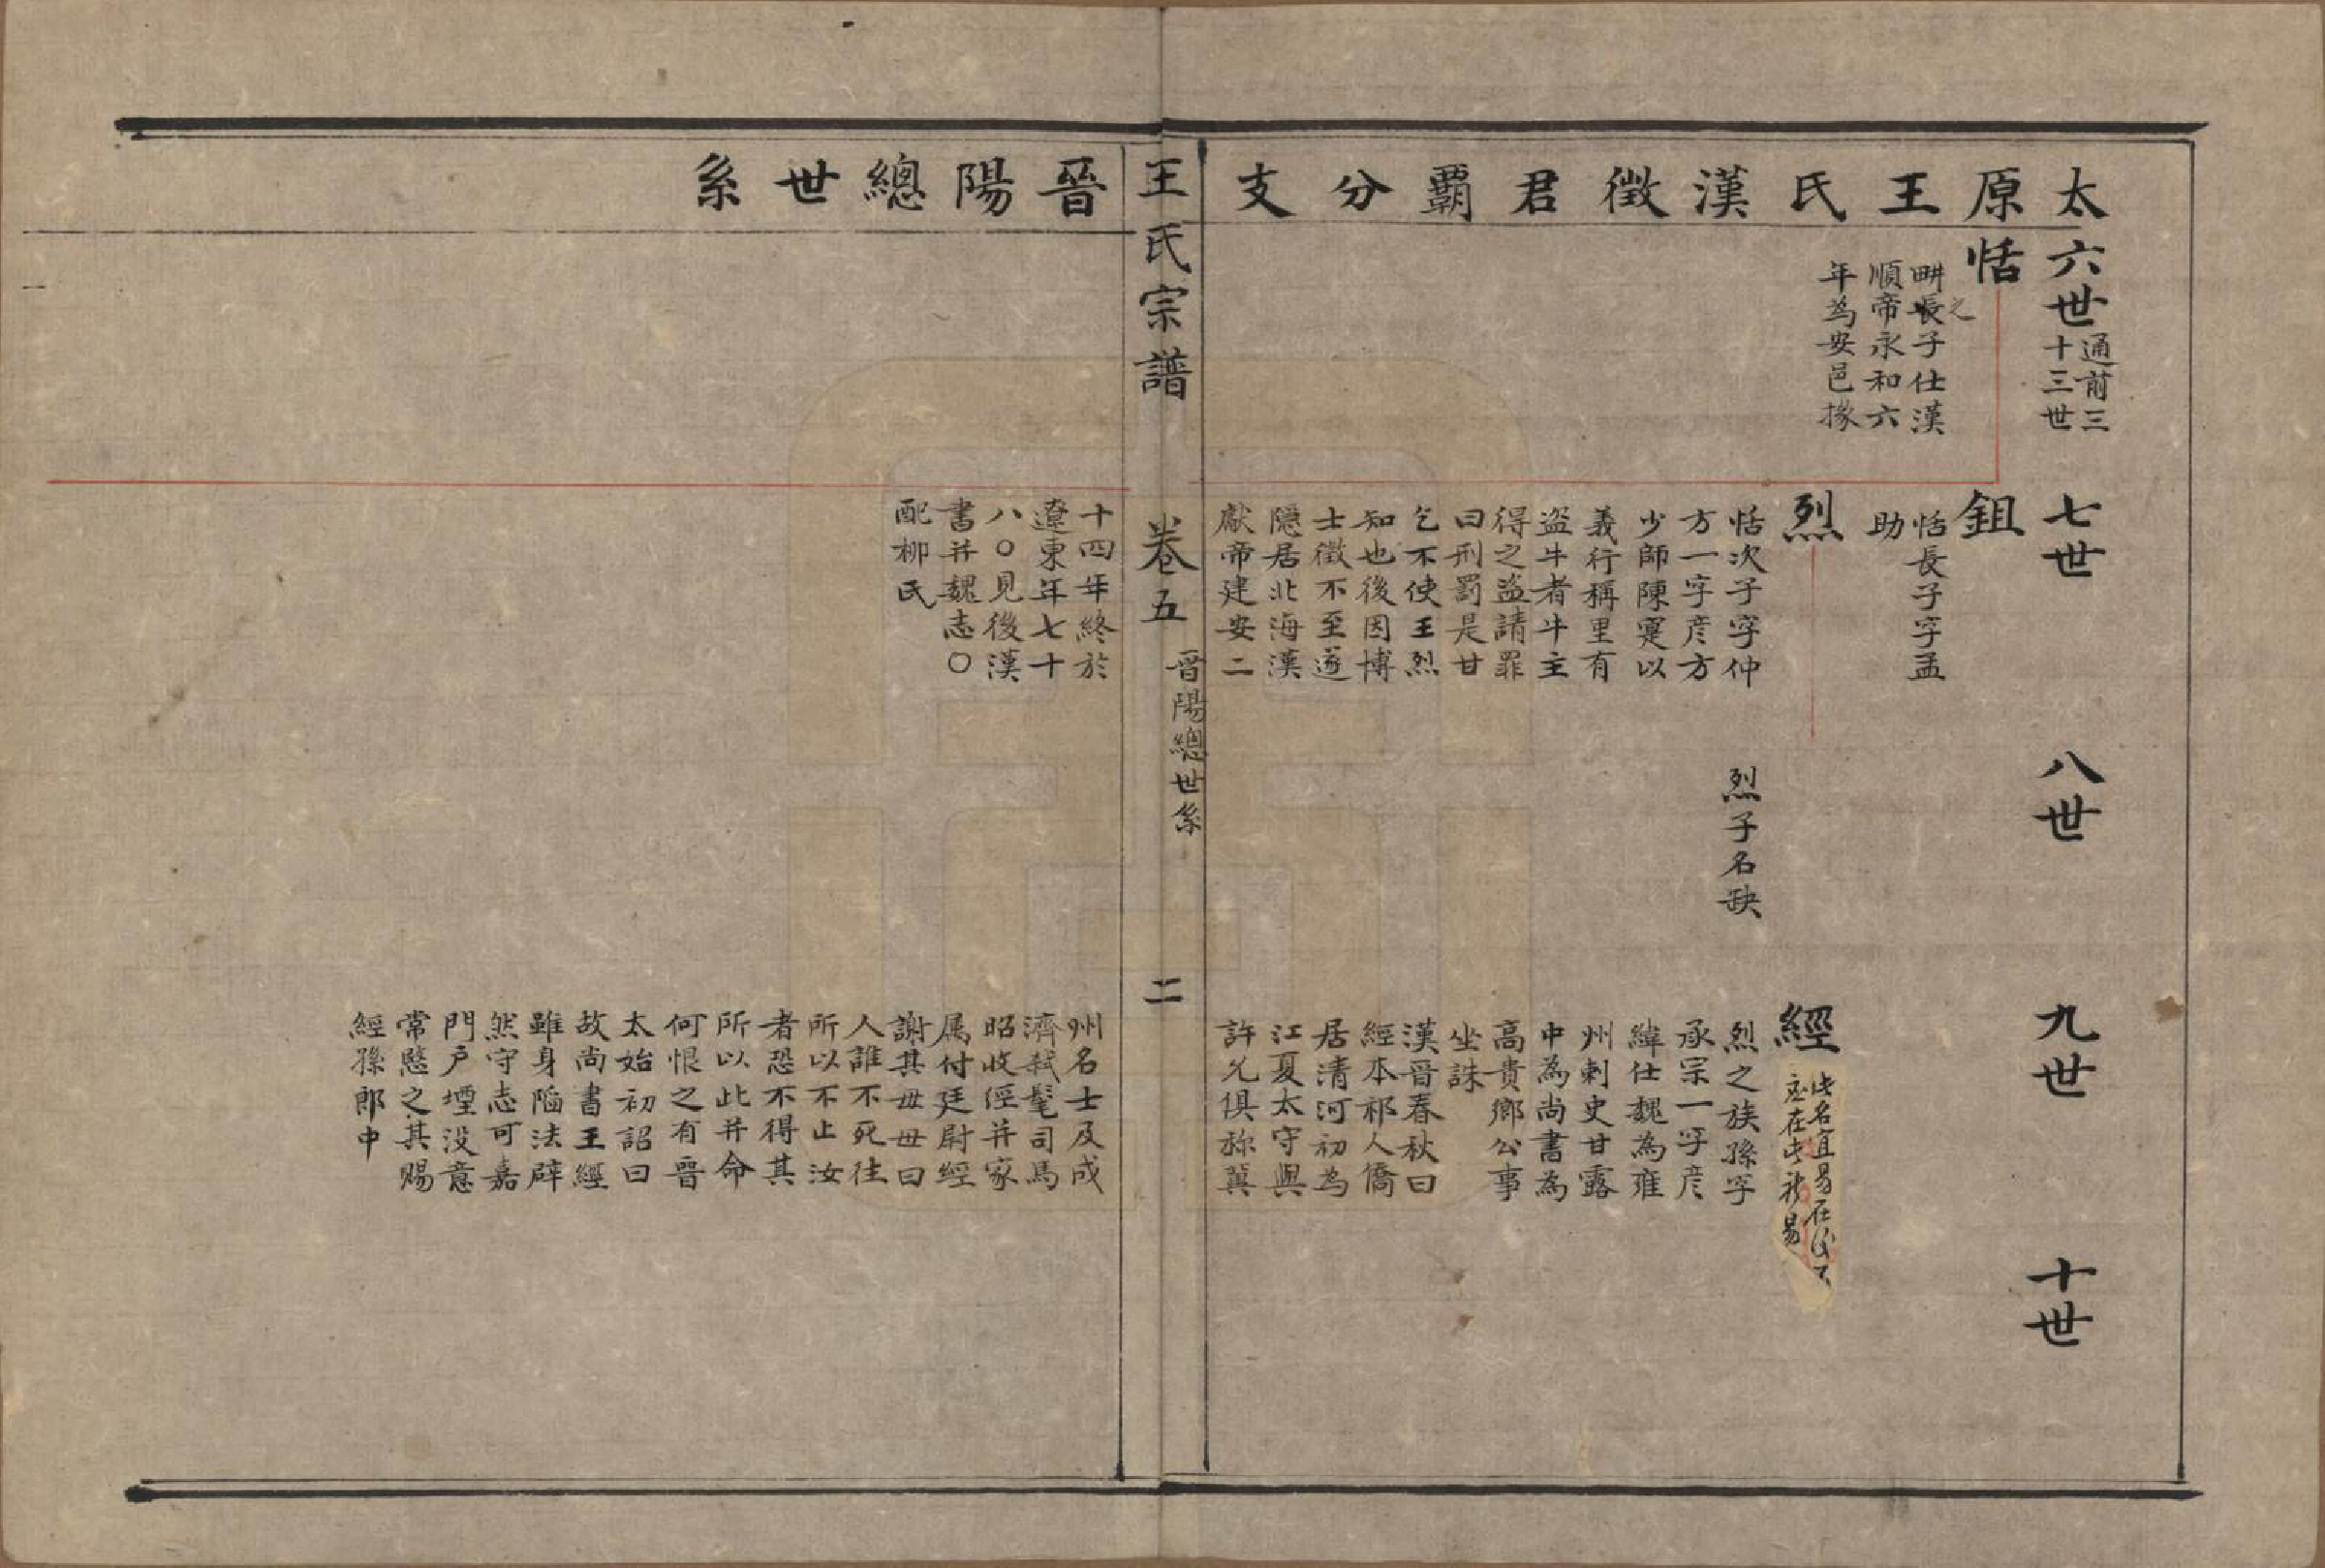 太原王氏漢徵君霸分支
晉陽總世系
六世
通前三
十三世
恬
畊之長子仕漢
順帝永和六
年為安邑掾
七世
鉏
恬長子字孟
助
烈
恬次子字仲
方一字彦方
少師陳寔以
義行稱里有
盗牛者牛主
得之盗請罪
曰刑罰是甘
乞不使王烈
知也後因博
士徵不至遂
隠居北海漢
獻帝建安二
十四年終於
遼東年七十
八〇見後漢
書并魏志〇
配柳氏
八世
烈子名缺
九世
經
此名宜易在後
在此
易
烈之族孫字
承宗一字彦
緯仕魏為雍
州刺史甘露
中為尚書為
高貴鄉公事
坐誅
漢晉春秋曰
經本祁人僑
居清河初為
江夏太守與
許允俱称冀
州名士及成
濟弑髦司馬
昭收經并家
属付廷尉經
謝其母母曰
人誰不死往
所以不止汝
者恐不得其
所以此并命
何恨之有晋
太始初詔曰
故尚書王經
雖身陥法辟
然守志可嘉
門户堙没意
常愍之其賜
經孫郎中
十世
王氏宗譜
卷五
晋陽總世系
二